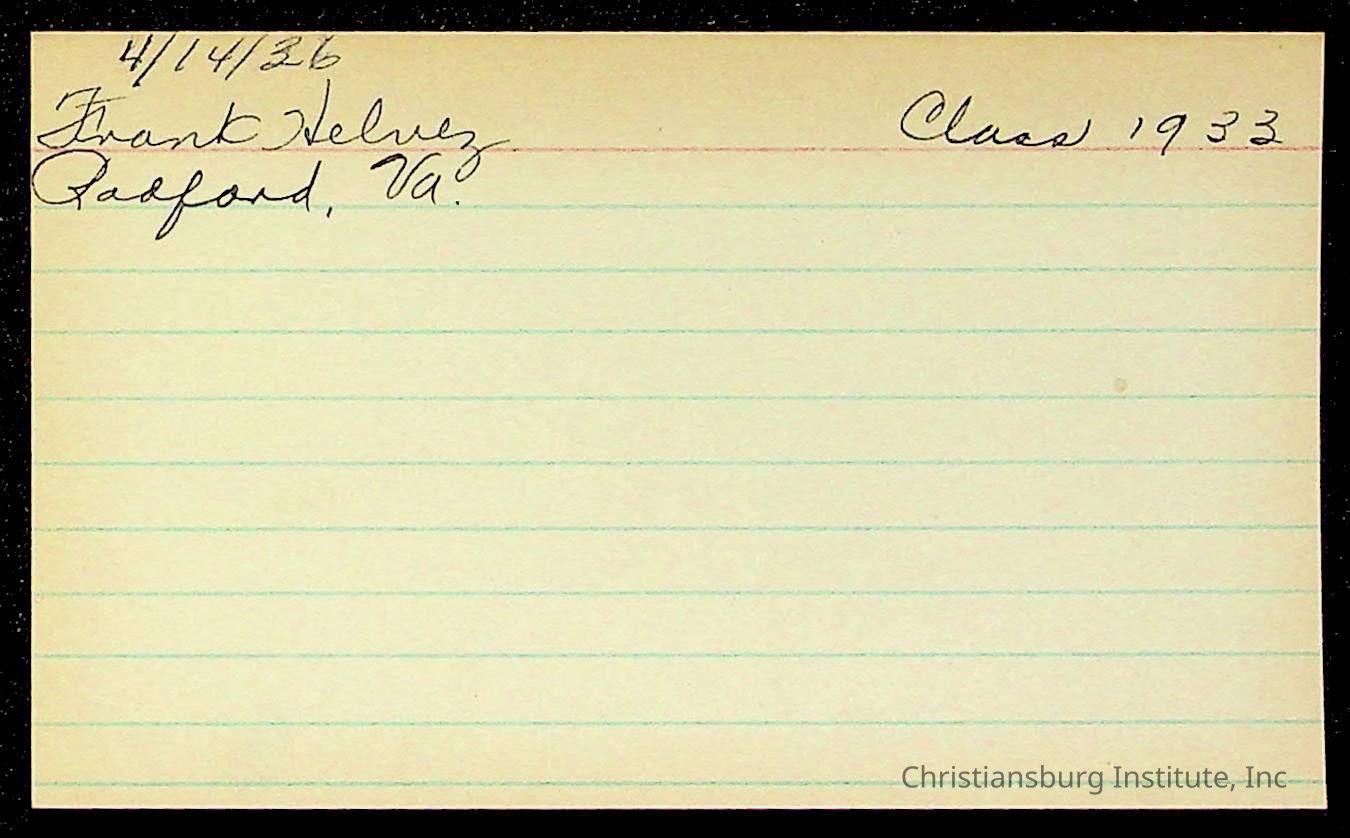 4/14/36
Frank Helvey Class 1933
Radford, Va.
Christiansburg Institute, Inc